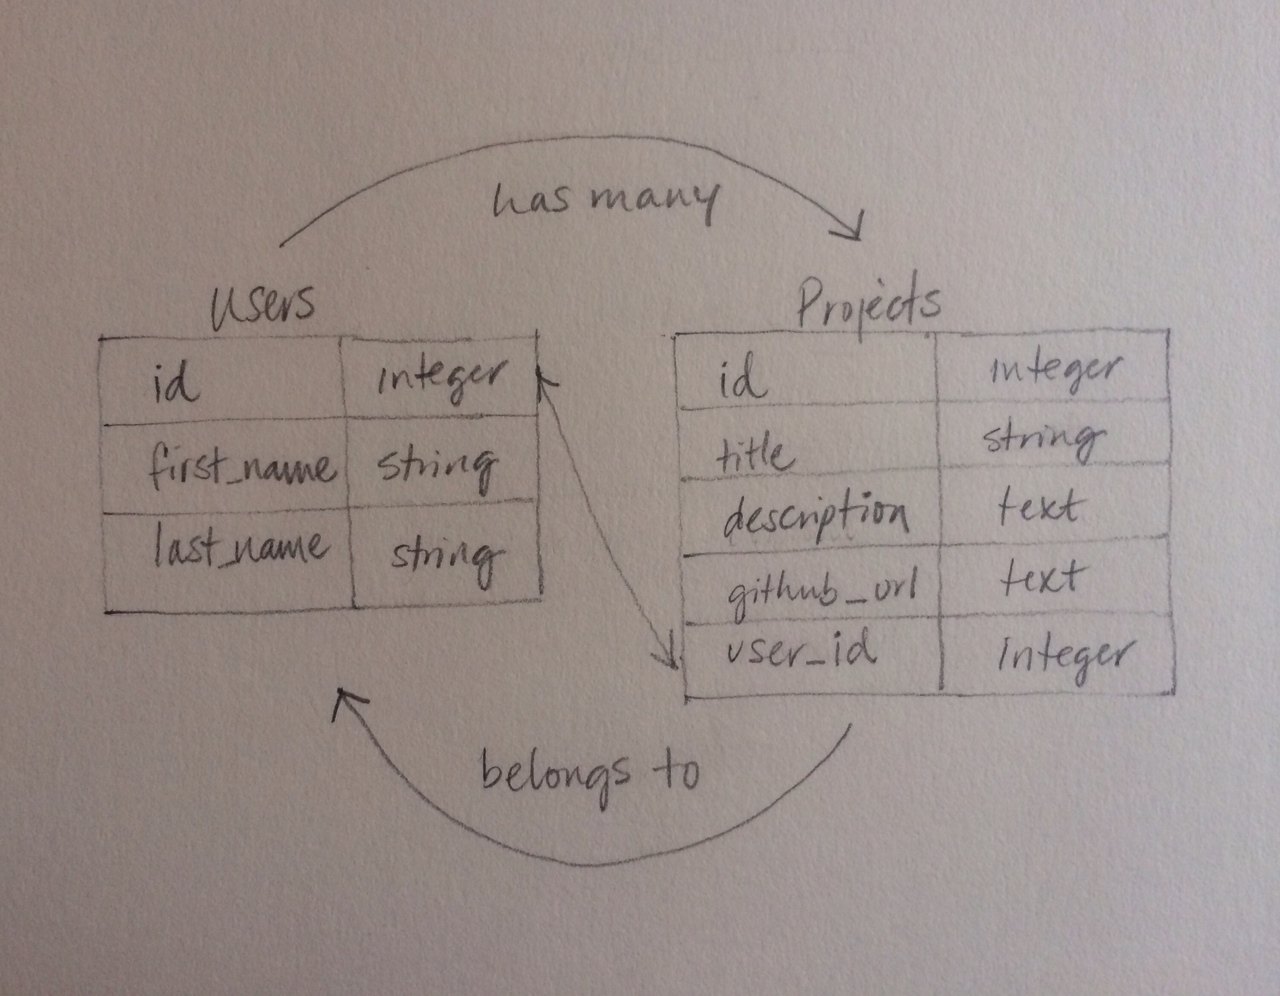 has many
Users
id integer
first_name string
last_name string
Projects
id integer
title string
description text
github_url text
user_id integer
belongs to